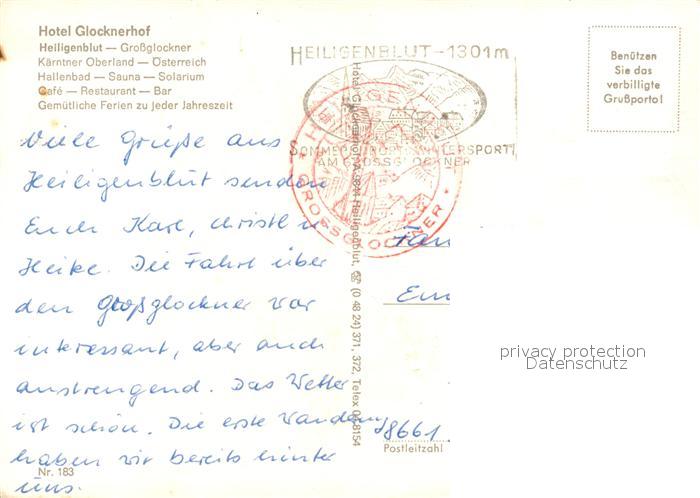 Hotel Glocknerhof
Heiligenblut — Großglockner
Kärntner Oberland — Österreich
Hallenbad — Sauna — Solarium
Café — Restaurant — Bar
Gemütliche Ferien zu jeder Jahreszeit
Viele Grüße aus
Heiligenblut senden
Euch Karl, Christl u
Heike. Die Fahrt über
den Großglockner war
interessant, aber auch
anstrengend. Das Wetter
ist schön. Die erste Wanderung
haben wir bereits hinter
uns.
Nr. 183
HEILIGENBLUT – 1301 m
SOMMER WINTERSPORT
AM GROSSGLOCKNER
GROSSGLOCKNER
Hotel Glocknerhof, A-9844 Heiligenblut, ☎ (0 48 24) 371, 372, Telex 04-8154
Benützen
Sie das
verbilligte
Grußporto!
Fam
Em
8661
Postleitzahl
privacy protection
Datenschutz